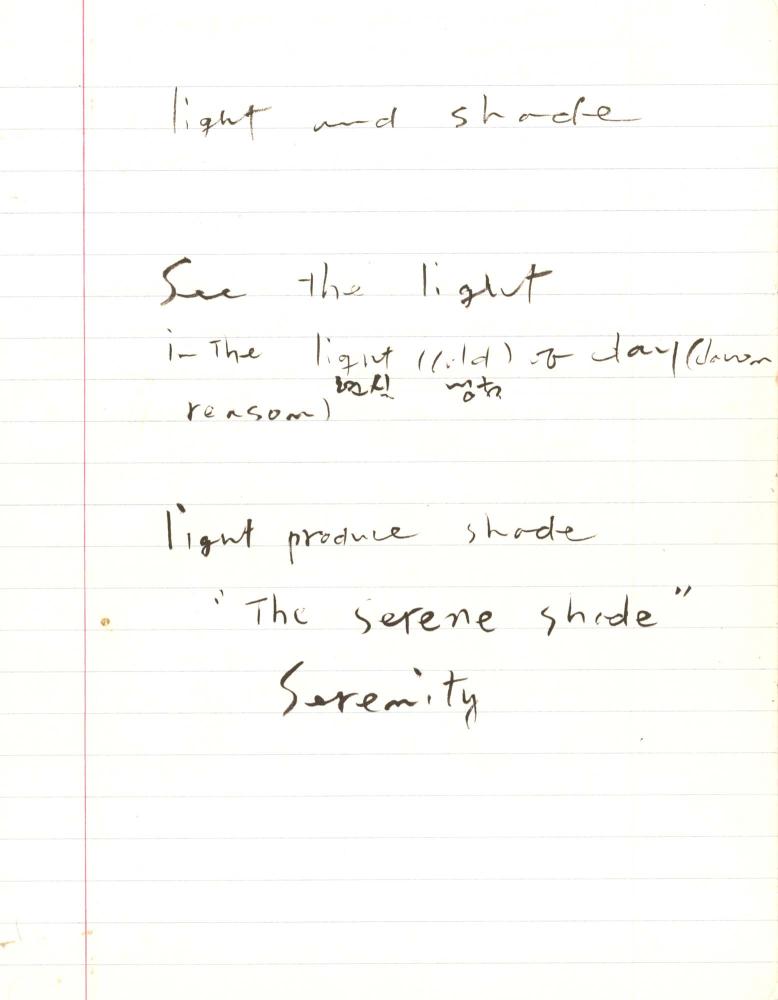 light and shade
See the light
in The light (cold) of day (dawn
reason)
light produce shade
"The serene shade"
Serenity